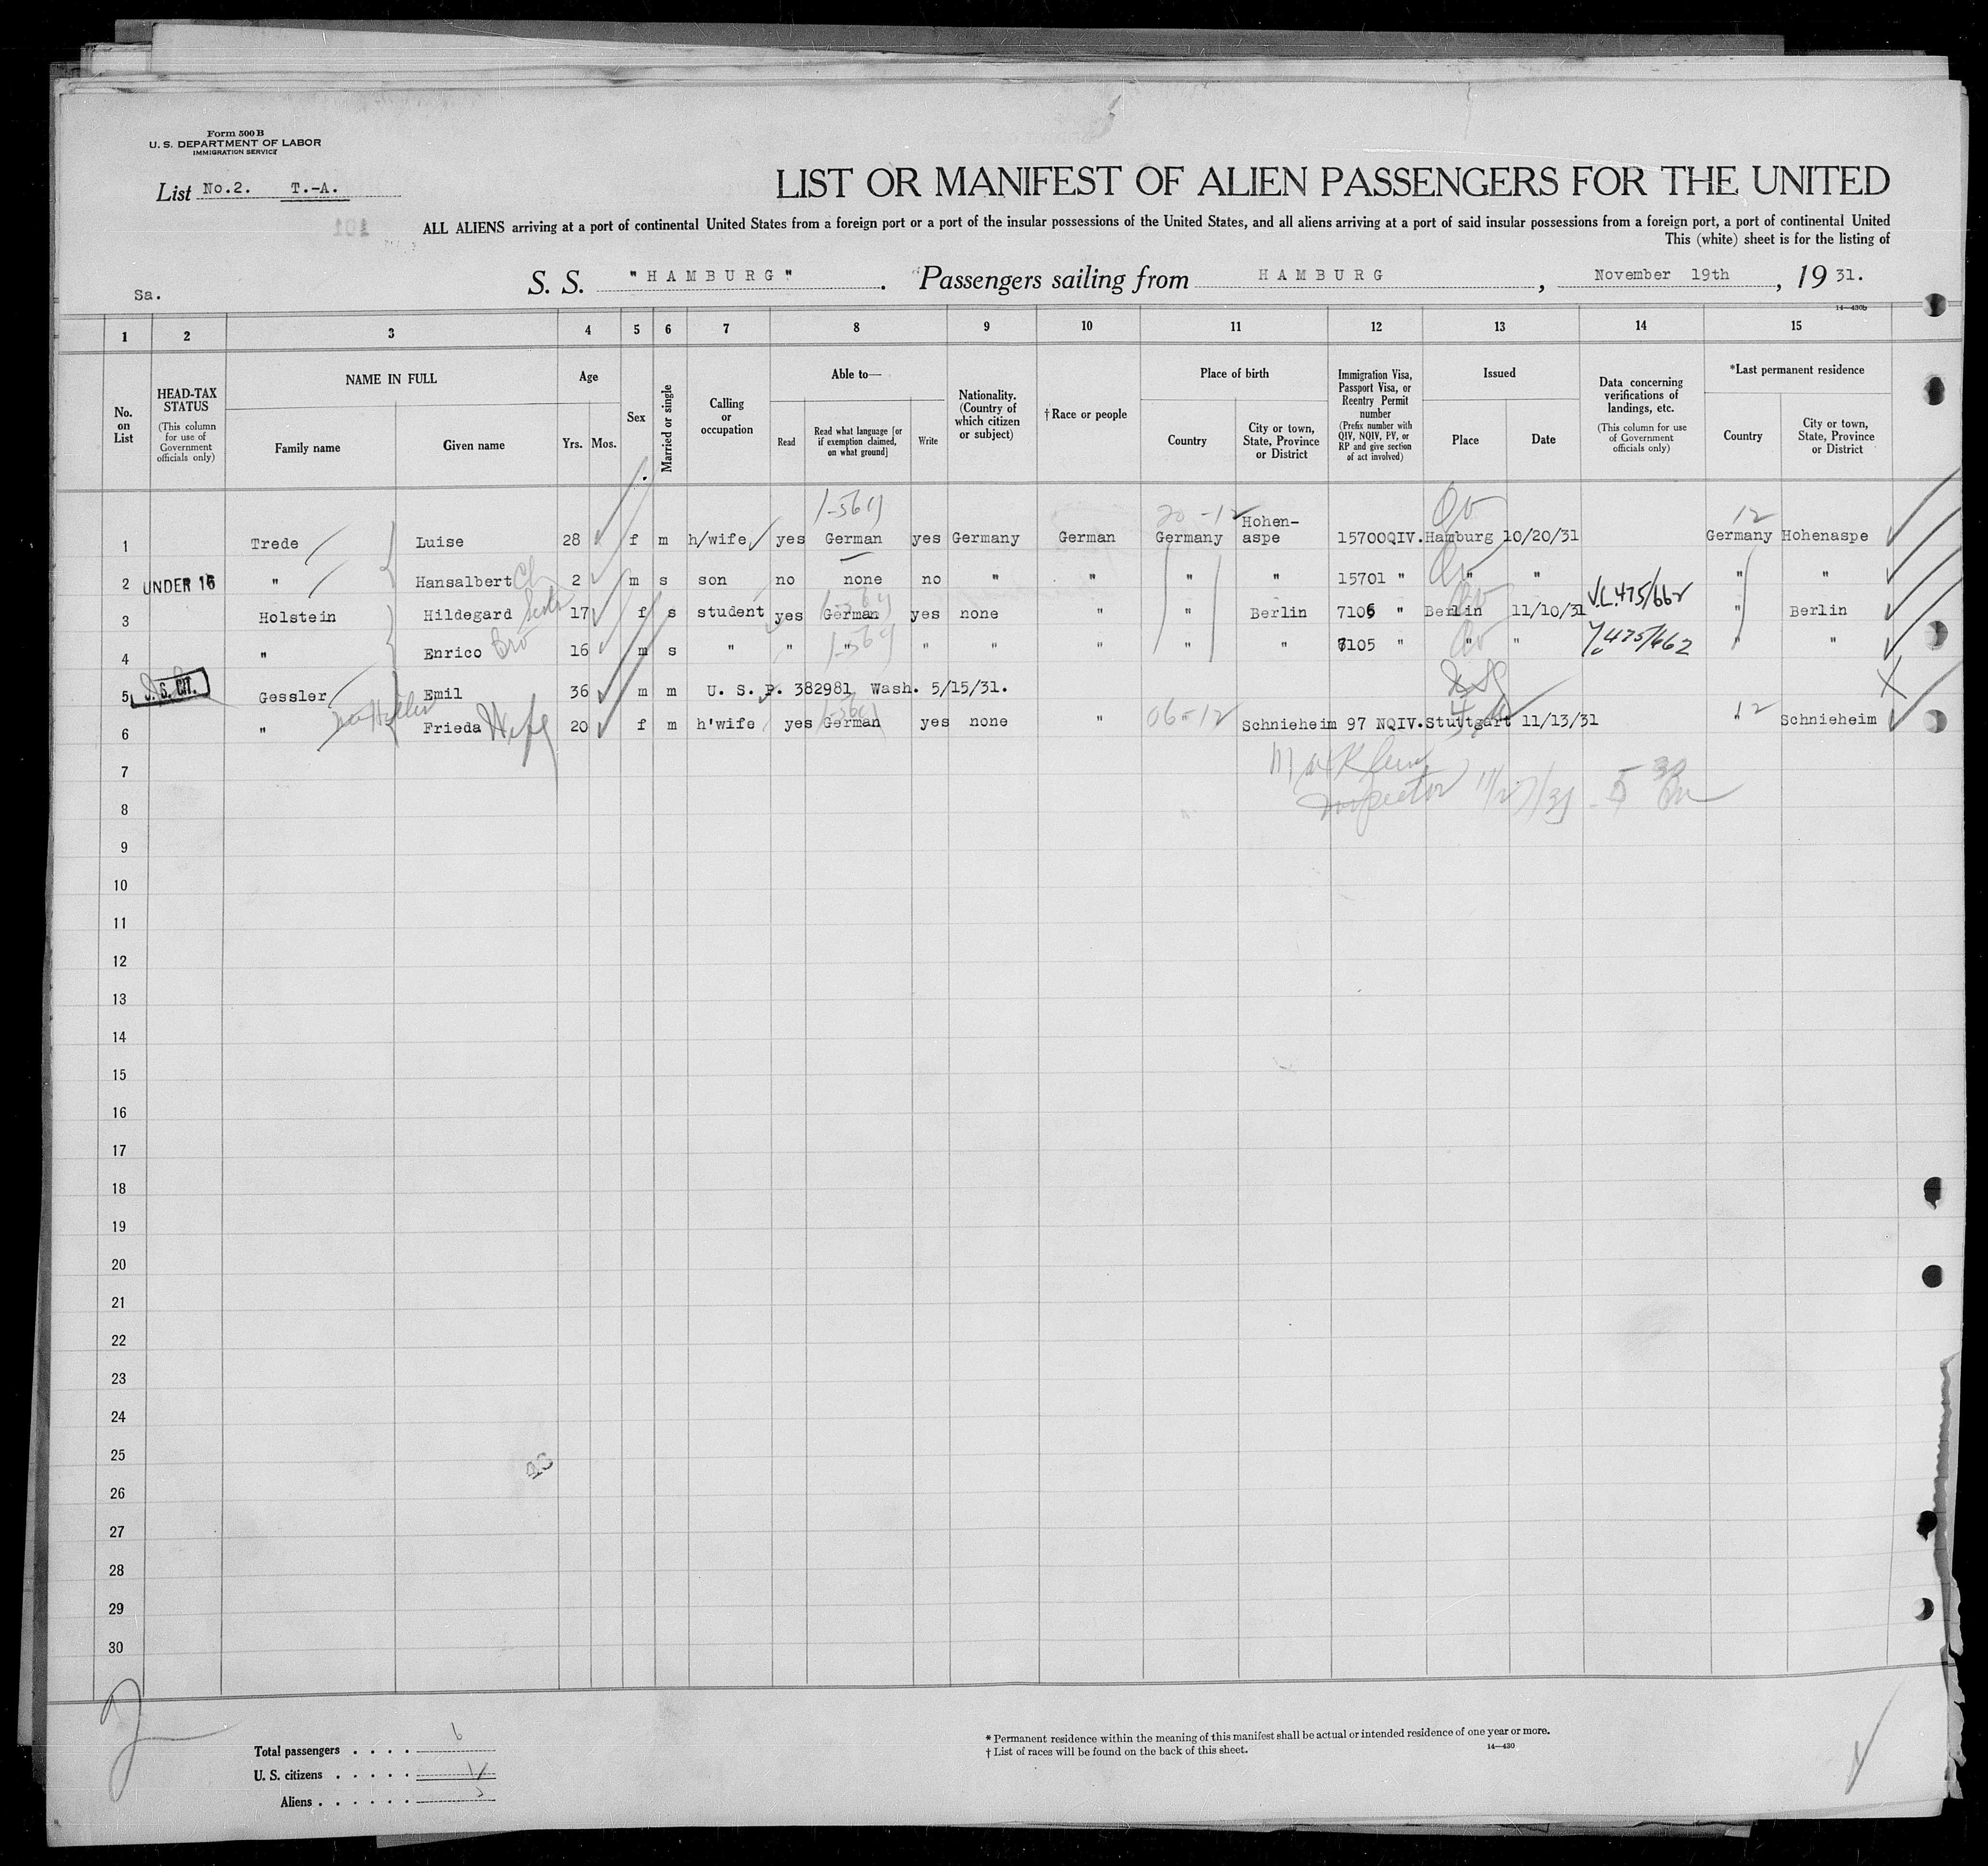 Form 500 B
U. S. DEPARTMENT OF LABOR
IMMIGRATION SERVICE
List No.2. T.-A.
LIST OR MANIFEST OF ALIEN PASSENGERS FOR THE UNITED
101
ALL ALIENS arriving at a port of continental United States from a foreign port or a port of the insular possessions of the United States, and all aliens arriving at a port of said insular possessions from a foreign port, a port of continental United
This (white) sheet is for the listing of
Sa.
S. S. "HAMBURG". Passengers sailing from HAMBURG, November 19th, 19 31.
14—430b
1 2 3 4 5 6 7 8 9 10 11 12 13 14 15
No. on List
HEAD-TAX STATUS (This column for use of Government officials only)
NAME IN FULL
Family name
Given name
Age
Yrs. Mos.
Sex
Married or single
Calling or occupation
Able to—
Read
Read what language [or if exemption claimed, on what ground]
Write
Nationality. (Country of which citizen or subject)
† Race or people
Place of birth
Country
City or town, State, Province or District
Immigration Visa, Passport Visa, or Reentry Permit number (Prefix number with QIV, NQIV, PV, or RP and give section of act involved)
Issued
Place
Date
Data concerning verifications of landings, etc. (This column for use of Government officials only)
*Last permanent residence
Country
City or town, State, Province or District
20 -12 12
1 Trede Luise 28 f m h/wife yes German yes Germany German Germany Hohen-aspe 15700QIV. Hamburg 10/20/31 Germany Hohenaspe
2 UNDER 16 " Hansalbert Ch 2 m s son no none no " " " " 15701 " " " " "
3 Holstein Hildegard 17 f s student yes German yes none " " Berlin 7106 " Berlin 11/10/31 V.L.475/662 " Berlin
4 " Enrico Bro 16 m s " " " " " " " " 7105 " " " 475/662 " "
5 U. S. CIT. Gessler Emil 36 m m U. S. P. 382981 Wash. 5/15/31.
6 " Frieda Wife 20 f m h'wife yes German yes none " 06-12 Schnieheim 97 NQIV. Stuttgart 11/13/31 " 12 Schnieheim
7
Inspector 11/27/31 5 30
8
9
10
11
12
13
14
15
16
17
18
19
20
21
22
23
24
25
26
27
28
29
30
Total passengers . . . . 6
U. S. citizens . . . . . 1
Aliens . . . . . . 5
* Permanent residence within the meaning of this manifest shall be actual or intended residence of one year or more.
† List of races will be found on the back of this sheet.
14—430